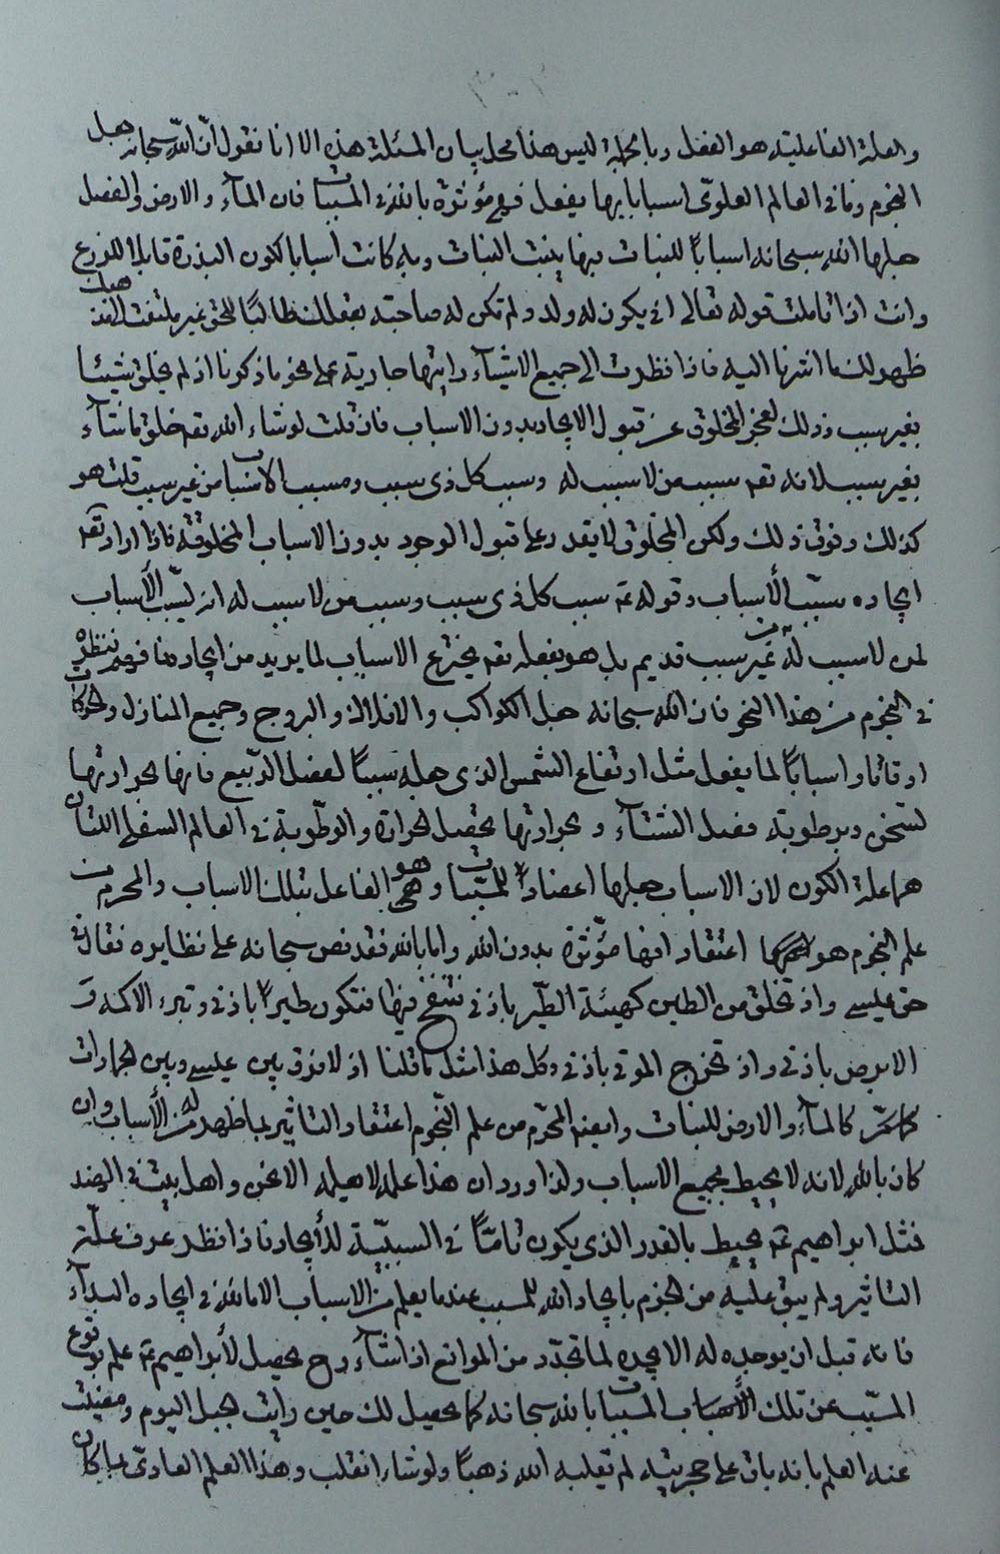 والعلة الفاعلية هو الفضل وبالجملة ليس هذا محل بيان المسئلة هذه الا انا نقول ان الله سبحانه جعل
النجوم وما في العالم العلوي اسبابا بها يفعل فهي مؤثرة بالله في المسببات فان الماء والارض والفصل
جعلها الله سبحانه اسباباً للنبات فبها ينبت النبات وبه كانت اسبابا لكون البذرة قابلا للزرع
وانت اذا تاملت قوله تعالى انى يكون له ولد ولم تكن له صاحبة بعقلك طالبًا للحق غير ملتفت
ظهر لك ما اشرنا اليه فاذا نظرت الى جميع الاشياء رايتها جارية على نحو ما ذكرنا اذ لم يخلق شيئا
بغير سبب وذلك لعجز المخلوق عن قبول الايجاد بدون الاسباب فان قلت لو شاء الله تعم خلق ما شاء
بغير سبب لانه تعم سبب من لا سبب له وسبب كل ذي سبب ومسبب الاسباب من غير سبب قلت هو
كذلك وفوق ذلك ولكن المخلوق لا يقدر على قبول الوجود بدون الاسباب المخلوقة فاذا اراد تعم
ايجاده سبّب الأسباب وقوله تم سبب كل ذي سبب وسبب من لا سبب له انه يسبّب الأسباب
لمن لا سبب له من غير سبب قديم بل هو بفعله تعم يخترع الاسباب لما يريد من ايجاده
في النجوم من هذا النحو فان الله سبحانه جعل الكواكب والافلاك والبروج وجميع المنازل والحركات
اوقاتا واسباباً لما يفعل مثل ارتفاع الشمس الذي جعله سبباً لفصل الربيع فانها بحرارتها
تسخن وبرطوبة فصل الشتاء وبحرارتها تحصل الحرارة والرطوبة في العالم السفلي اللتان
هما علة الكون لان الاسباب جعلها اعضاداً للمسببات وهو الفاعل بتلك الاسباب والمحرم من
علم النجوم هو اعتقاد انها مؤثرة بدون الله واما بالله فقد نص سبحانه على نظايره فقال في
حق عيسى واذ تخلق من الطين كهيئة الطير باذني فتنفخ فيها فتكون طيراً باذني وتبرء الاكمه و
الابرص باذني واذ تخرج الموتى باذني وكل هذا مثل ما قلنا اذ لا فرق بين عيسى وبين الجمادات
كما مرّ كالماء والارض للنبات وايضا المحرّم من علم النّجوم اعتقاد التاثير بما ظهر له من الأسباب وان
كان بالله لانه لا يحيط بجميع الاسباب ولذا ورد ان هذا علم لا يعلمه الا نحن واهل بيت في الهند
فمثل ابراهيم تم يحيط بالقدر الذي يكون تامّاً في السببيّة للأيجاد فاذا نظر عرف علّة
التاثير ولم يبق عليه من الجزم بايجاد الله للمسبب عندما يعلم من الاسباب الا ما لله في ايجاده البداء
فانه قبل ان يوجده له الا يوجده لما تجدّد من الموانع اذا شاء وح يحصل لأبراهيم تم علم بوقوع
المسبّب عن تلك الأسباب المسببات بالله سبحانه كما يحصل لك حين رايت الجبل اليوم ومضيت
عنه العلم بانه باق على حجريته لم يقلبه الله ذهباً ولو شاء انقلب وهذا العلم العادي بما كان